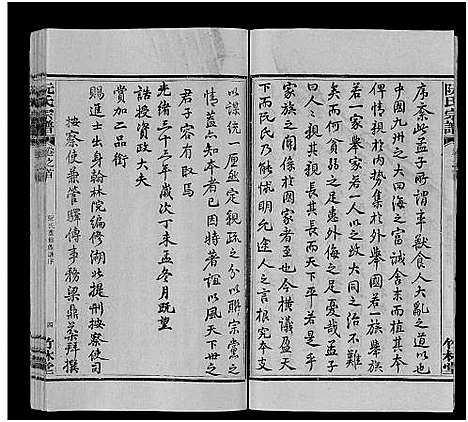 阮氏宗譜
序紊此孟子所謂率獸食人大亂之道以也
中國九州之大四海之富誠舍末而植其本
則根於內勢集於外舉國若一族舉族
若一家舉家若一人以之致大同之治不難
矣而何貧弱之足患外侮之足憂哉孟子
曰人人親其親長其長而天下平若是乎
家族之關係於國家者也今橫議盈天
下而阮氏乃能恍明允途人之言根究本支
竹林堂
以謀統一厘然定親疏之分以聯宗黨之
情蓋亦知本者已因特著誼以風天下世之
君子容有取焉
光緒三十三年歲次丁未孟冬月既望
誥授資政大夫
賞加二品銜
賜進士出身翰林院編修湖北提刑按察使司
按察使兼管驛傳事務梁鼎棻拜撰
阮氏宗譜
卷之首
阮氏重修族譜序
四
竹林堂